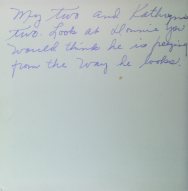 My two and Kathryn
two. Look at Donnie you
would think he is praying
from the way he looks.